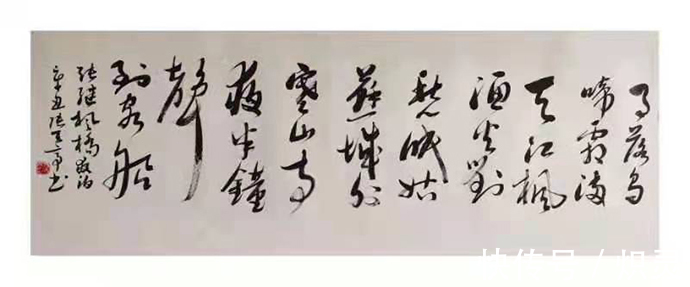 月落乌
啼霜满
天江枫
渔火對
愁眠姑
蘇城外
寒山寺
夜半鐘
聲
到客船
张继枫橋夜泊
辛丑 书
快传号 /